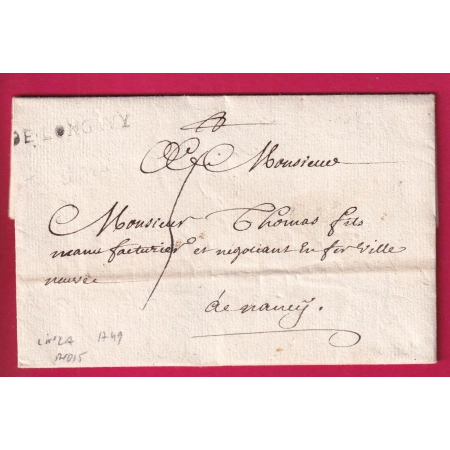 DE LONGWY
A Monsieur
Monsieur Thomas fils
manufacturier et negotiant En fer Ville
neuve
de nancy.
1749